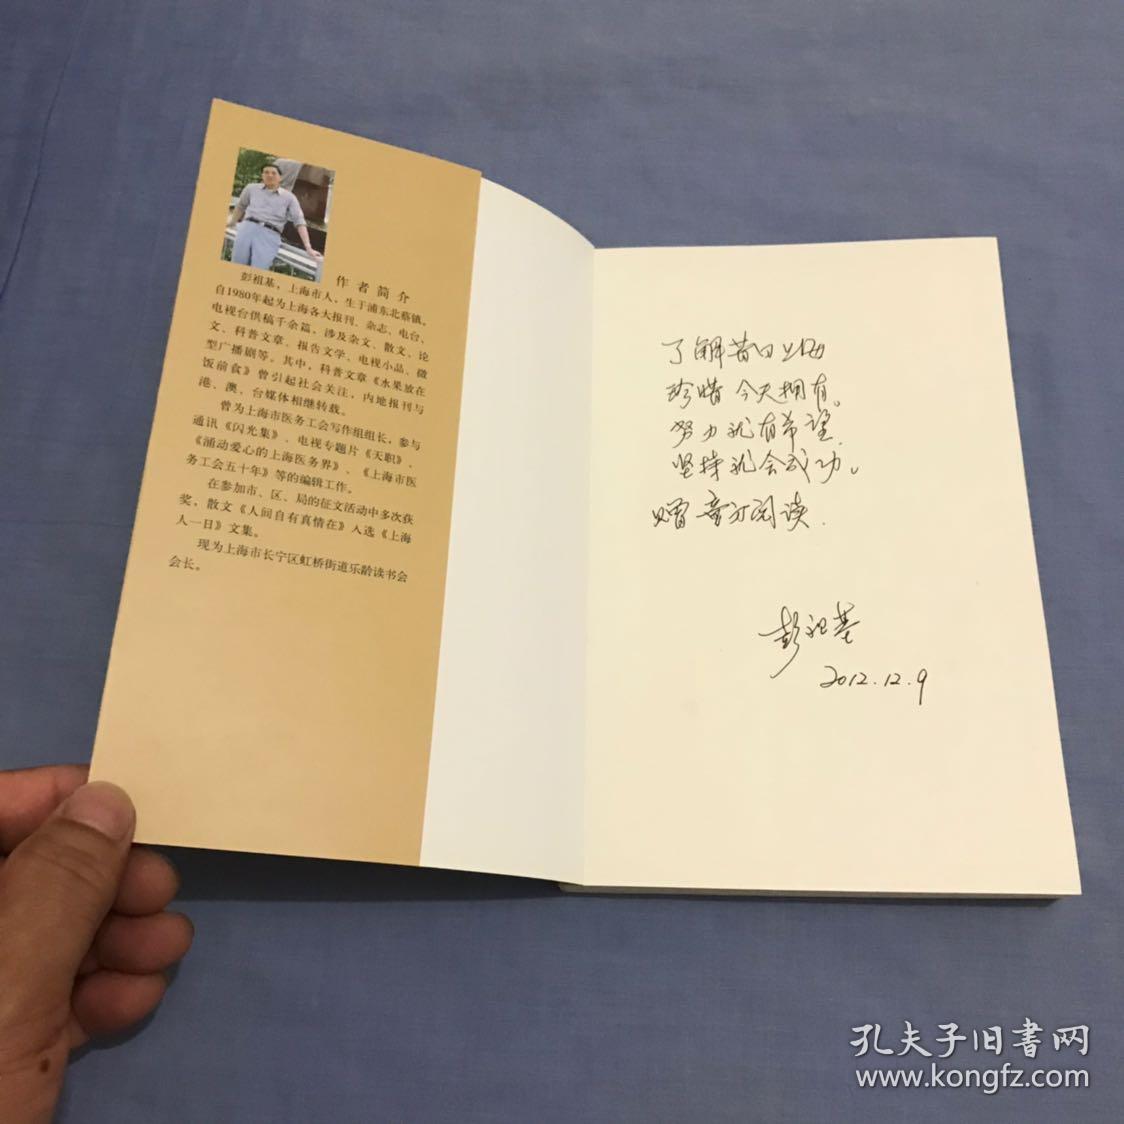 作者简介
彭祖基，上海市人，生于浦东北蔡镇。
自1980年起为上海各大报刊、杂志、电台、
电视台供稿千余篇，涉及杂文、散文、论
文、科普文章、报告文学、电视小品、微
型广播剧等。其中，科普文章《水果放在
饭前食》曾引起社会关注，内地报刊与
港、澳、台媒体相继转载。
曾为上海市医务工会写作组组长，参与
通讯《闪光集》、电视专题片《天职》、
《涌动爱心的上海医务界》、《上海市医
务工会五十年》等的编辑工作。
在参加市、区、局的征文活动中多次获
奖，散文《人间自有真情在》入选《上海
人一日》文集。
现为上海市长宁区虹桥街道乐龄读书会
会长。
了解昔日上海
珍惜今天拥有。
努力就有希望
坚持就会成功。
赠 阅读
彭祖基
2012.12.9
孔夫子旧书网
www.kongfz.com